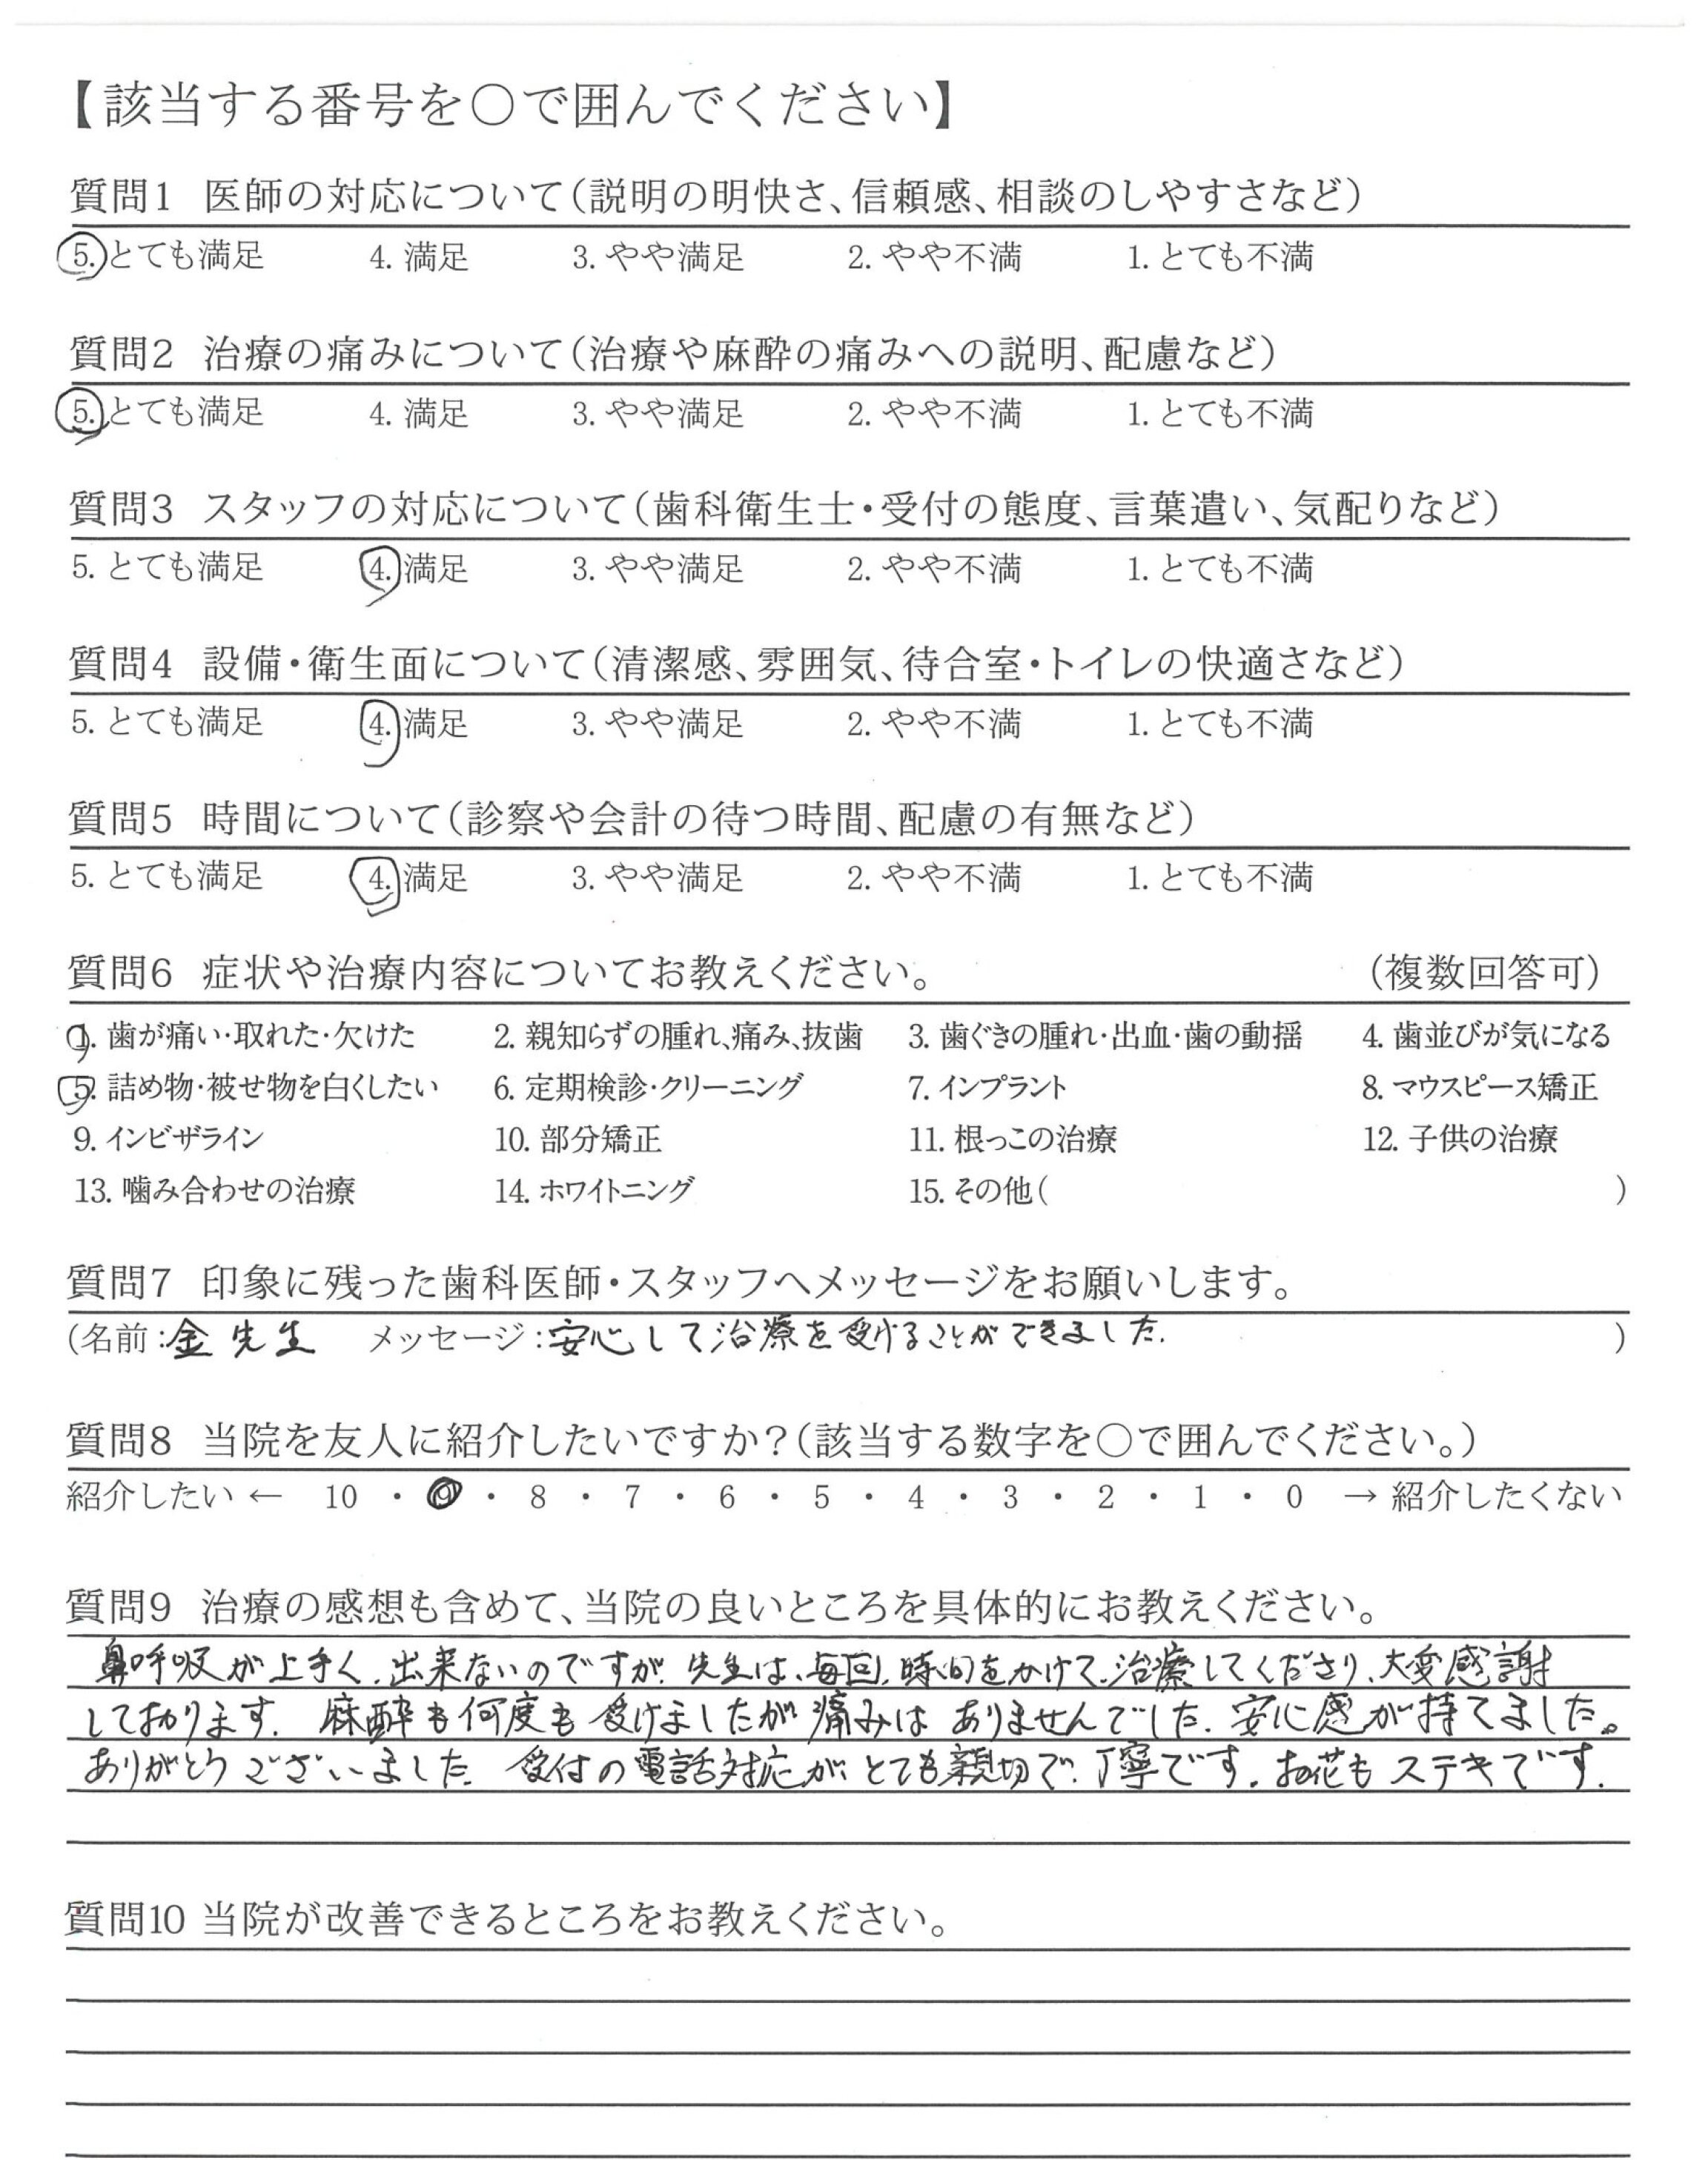 【該当する番号を○で囲んでください】
質問1 医師の対応について(説明の明快さ、信頼感、相談のしやすさなど)
5. とても満足 4. 満足 3. やや満足 2. やや不満 1. とても不満
質問2 治療の痛みについて(治療や麻酔の痛みへの説明、配慮など)
5. とても満足 4. 満足 3. やや満足 2. やや不満 1. とても不満
質問3 スタッフの対応について(歯科衛生士・受付の態度、言葉遣い、気配りなど)
5. とても満足 4. 満足 3. やや満足 2. やや不満 1. とても不満
質問4 設備・衛生面について(清潔感、雰囲気、待合室・トイレの快適さなど)
5. とても満足 4. 満足 3. やや満足 2. やや不満 1. とても不満
質問5 時間について(診察や会計の待つ時間、配慮の有無など)
5. とても満足 4. 満足 3. やや満足 2. やや不満 1. とても不満
質問6 症状や治療内容についてお教えください。 (複数回答可)
1. 歯が痛い・取れた・欠けた 2. 親知らずの腫れ、痛み、抜歯 3. 歯ぐきの腫れ・出血・歯の動揺 4. 歯並びが気になる
5. 詰め物・被せ物を白くしたい 6. 定期検診・クリーニング 7. インプラント 8. マウスピース矯正
9. インビザライン 10. 部分矯正 11. 根っこの治療 12. 子供の治療
13. 噛み合わせの治療 14. ホワイトニング 15. その他( )
質問7 印象に残った歯科医師・スタッフへメッセージをお願いします。
(名前:金先生 メッセージ:安心して治療を受けることができました. )
質問8 当院を友人に紹介したいですか?(該当する数字を○で囲んでください。)
紹介したい ← 10 ・ 9 ・ 8 ・ 7 ・ 6 ・ 5 ・ 4 ・ 3 ・ 2 ・ 1 ・ 0 → 紹介したくない
質問9 治療の感想も含めて、当院の良いところを具体的にお教えください。
鼻呼吸が上手く、出来ないのですが、先生は、毎回、時間をかけて、治療してくださり、大変感謝
しております. 麻酔も何度も受けましたが痛みはありませんでした. 安心感が持てました。
ありがとうございました. 受付の電話対応が、とても親切で、丁寧です. お花もステキです.
質問10 当院が改善できるところをお教えください。